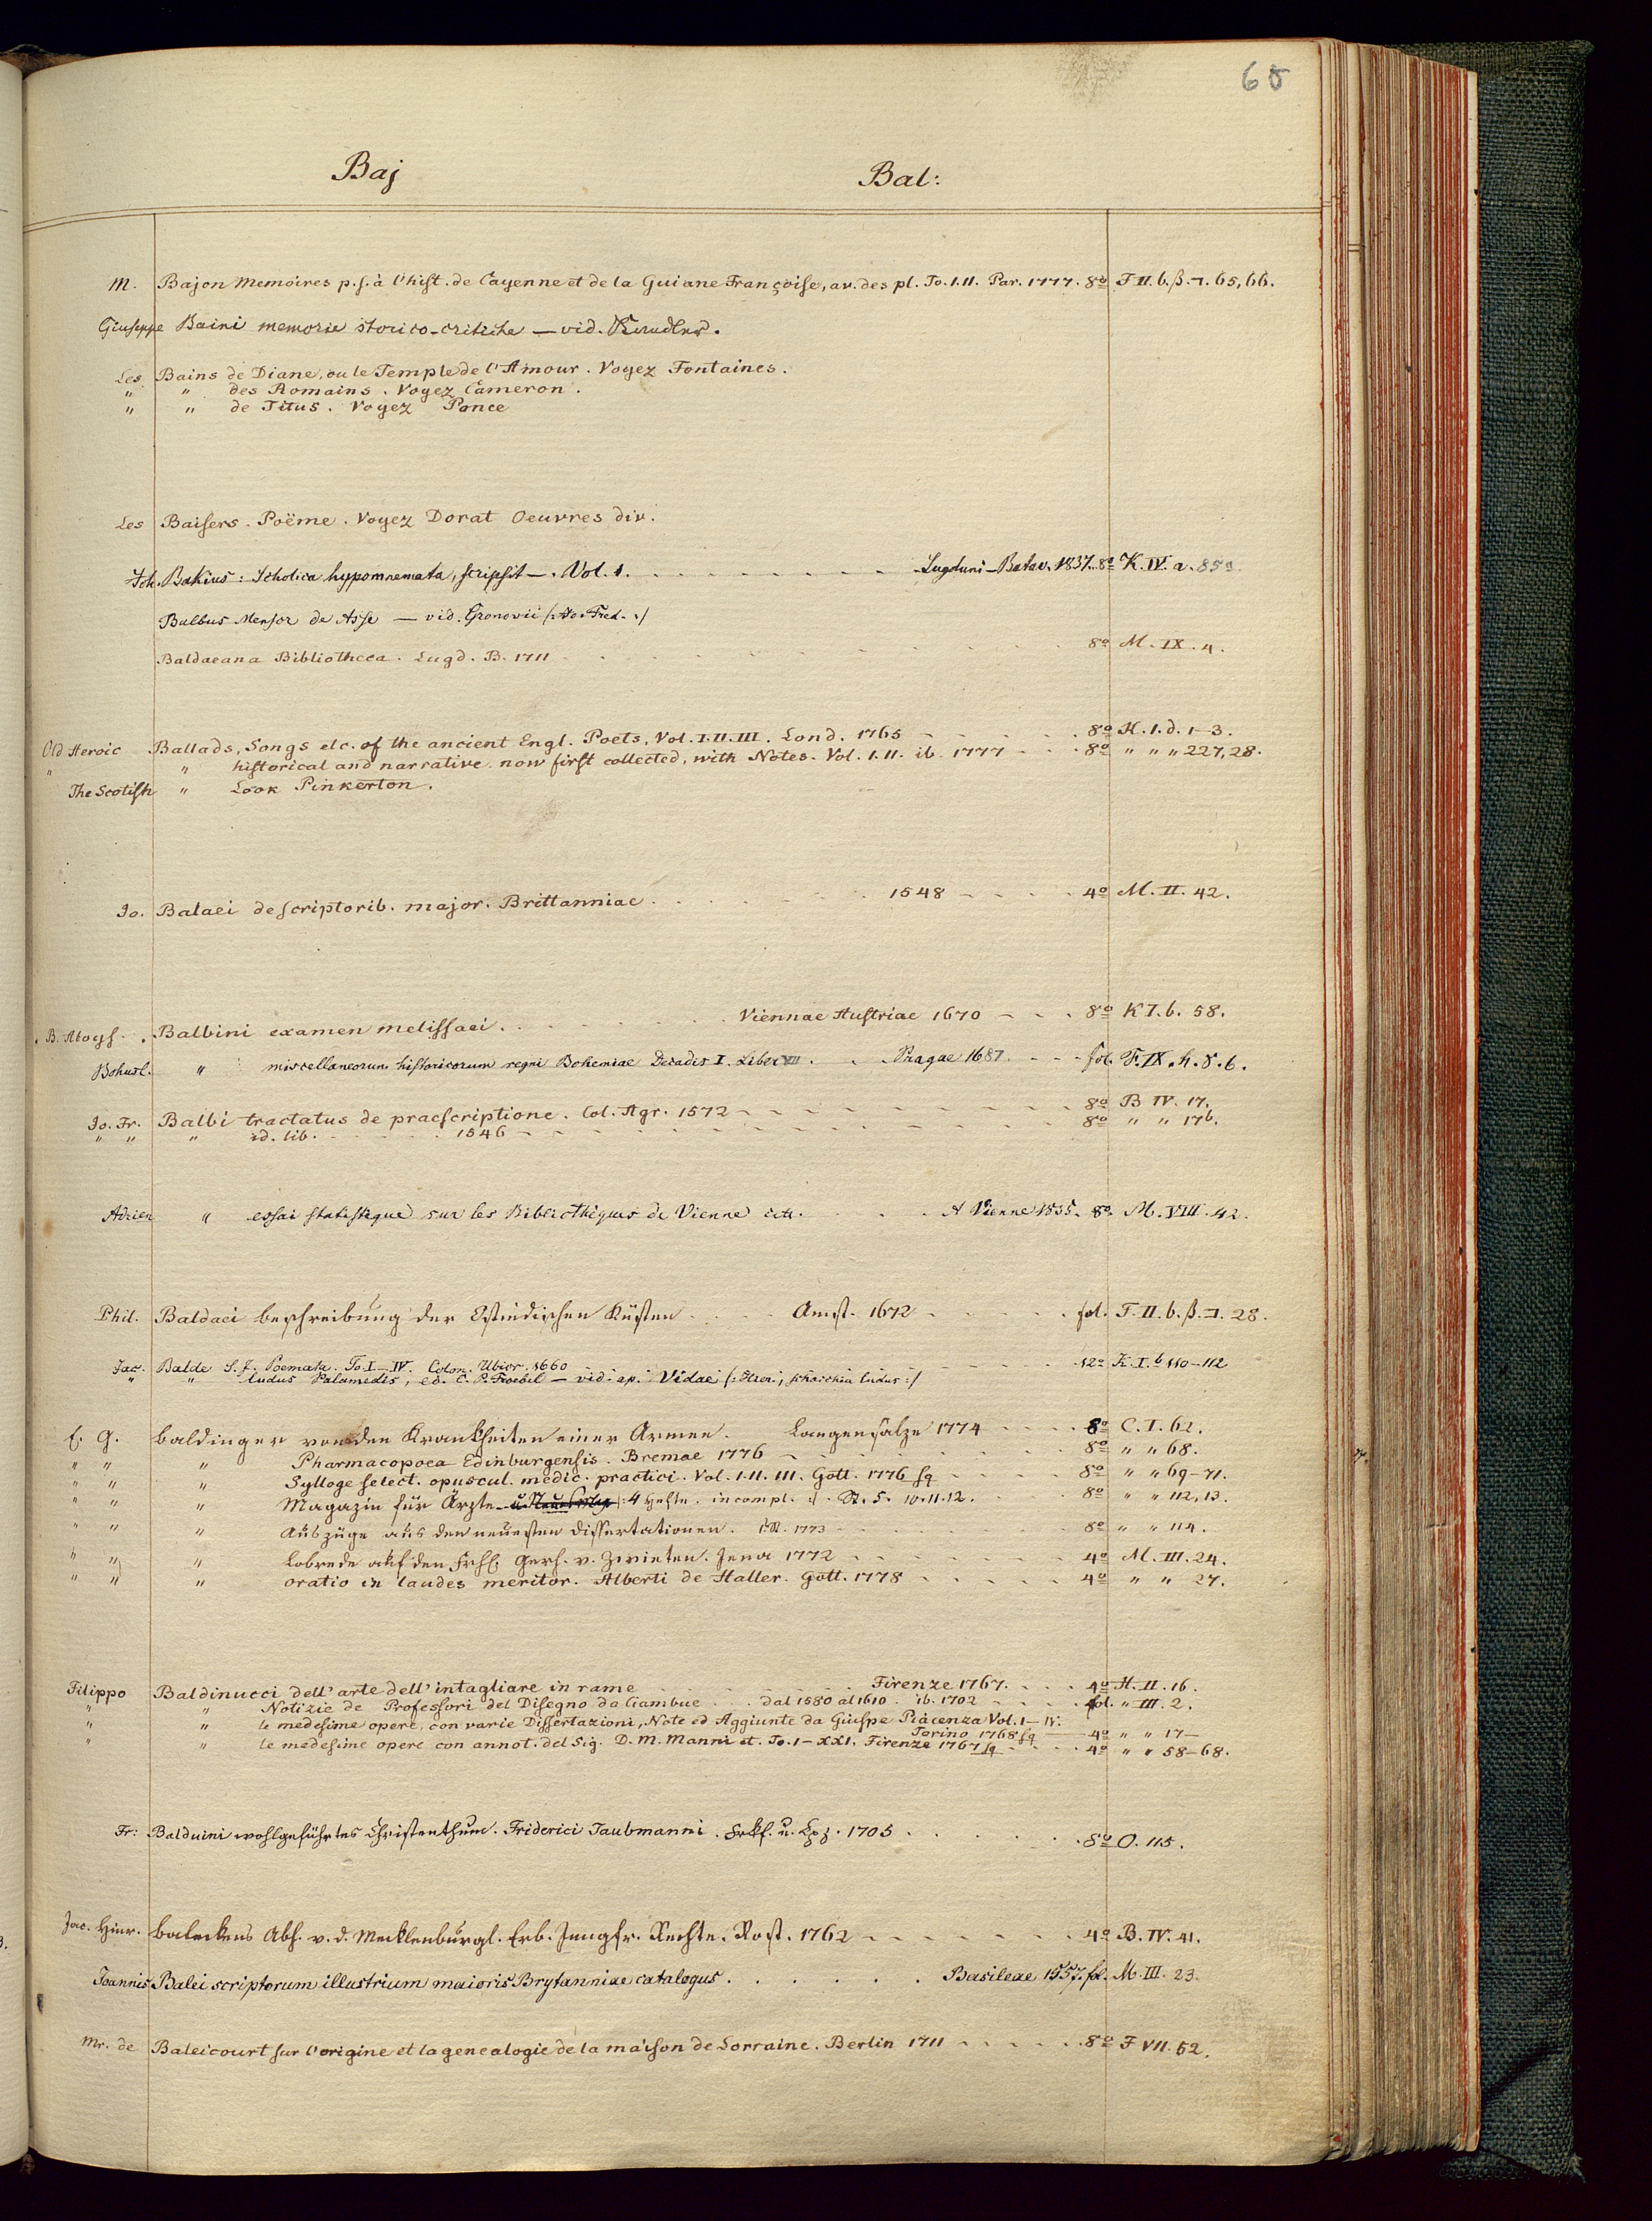 60
Baj Bal:
M. Bajon Memoires p. s. à l'hist. de Cayenne et de la Guiane Françoise, av. des pl. To. I. II. Par. 1777. 8º F II. b. β. ℸ. 65, 66.
Giuseppe Baini memorie storico-critiche — vid. Kandler.
Les Bains de Diane, ou le Temple de l'Amour. Voyez Fontaines.
" " des Romains. Voyez Cameron.
" " de Titus. Voyez Ponce
Les Baisers. Poëme. Voyez Dorat Oeuvres div.
Joh. Bakius: Scholica hypomnemata, scripsit —. Vol. 1. Lugduni-Batav. 1837. 8º K. IV. a. 85a
Balbus Mensor de Asse — vid. Gronovii /: Jo. Fred. :/
Baldaeana Bibliotheca. Lugd. B. 1711 8º M. IX. 4.
Old Heroic Ballads, Songs etc. of the ancient Engl. Poets, Vol. I. II. III. Lond. 1765 8º H. I. d. 1-3.
" " historical and narrative. now first collected, with Notes. Vol. I. II. ib. 1777 8º " " " 227, 28.
The Scotish " Look Pinkerton.
Jo. Balaei de scriptorib. major. Brittanniae 1548 4º M. II. 42.
B. Aloys. Balbini examen melissaei. Viennae Austriae 1670 8º K I. b. 58.
Bohusl. " miscellaneorum historicorum regni Bohemiae Decadis I. Liber VII. Pragae 1687. fol. F. IX. h. 8. b.
Jo. Fr. Balbi tractatus de praescriptione. Col. Agr. 1572 8º B IV. 17.
" " " id. lib. 1546 8º " " 17b.
Adrien " essai statistique sur les Bibliothèques de Vienne ett. A Vienne 1835. 8º M. VIII. 42.
Phil. Baldaei beschreibung der Ostindischen Küsten Amst. 1672 fol. F. II. b. β. ℸ. 28.
Jac. Balde S. J. Poemata. To I-IV. Colon. Ubior. 1660 12º K. I. b 110-112
" " ludus Palamedis, ed. C. P. Froebel — vid. ap. Vidae /: Hier., schacchia ludus :/
E. G. Baldinger von den Krankheiten einer Armee. Langensalze 1774 8º C. I. 62.
" " " Pharmacopoea Edinburgensis. Bremae 1776 8º " " 68.
" " " Sylloge select. opuscul. medic. practici. Vol. I. II. III. Gött. 1776 sq 8º " " 69-71.
" " " Magazin für Ärzte /: 4 Hefte. incompl. :/. St. 5. 10. 11. 12. 8º " " 112, 13.
" " " Auszüge aus den neuesten Dissertationen. 1773 8º " " 114.
" " " Lobrede auf den Frhl. Gerh. v. Zwieten. Jena 1772 4º M. III. 24.
" " " oratio in laudes meritor. Alberti de Haller. Gött. 1778 4º " " 27.
Filippo Baldinucci dell' arte dell' intagliare in rame Firenze 1767. 4º H. II. 16.
" " Notizie de Professori del Disegno da Ciambue dal 1580 al 1610. ib. 1702 fol. " III. 2.
" " le medesime opere, con varie Dissertazioni, Note ed Aggiunte da Giuspe Piacenza Vol. I-IV. Torino 1768 sq 4º " " 17—
" " le medesime opere con annot. del Sig. D. M. Manni et. To. I-XXI. Firenze 1767 sq 4º " " 58-68.
Fr: Balduini wohlgeführtes Christenthum. Friderici Taubmanni. Frkf. u. Lpz. 1705 8º O. 115.
Jac. Hinr. Baleckens Abh. v. d. Mecklenburgl. Erb-Jungfr. Rechte. Rost. 1762 4º B. IV. 41.
Joannis Balei scriptorum illustrium maioris Brytanniae catalogus. Basileae 1557. fol. M. III. 23.
Mr. de Baleicourt sur l'origine et la genealogie de la maison de Lorraine. Berlin 1711 8º F VII. 52.